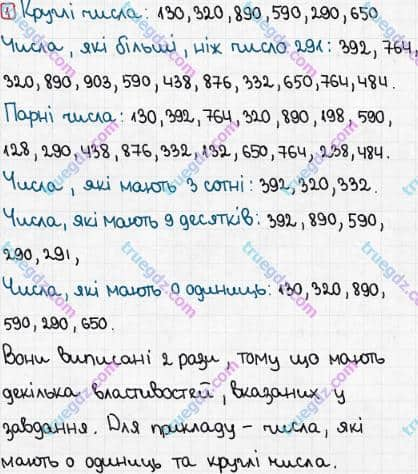 1 Круглі числа: 130, 320, 890, 590, 290, 650
Числа, які більші, ніж число 291: 392, 764,
320, 890, 903, 590, 438, 876, 332, 650, 764, 484.
Парні числа: 130, 392, 764, 320, 890, 198, 590,
128, 290, 438, 876, 332, 132, 650, 764, 238, 484.
Числа, які мають 3 сотні: 392, 320, 332.
Числа, які мають 9 десятків: 392, 890, 590,
290, 291,
Числа, які мають 0 одиниць: 130, 320, 890,
590, 290, 650.
Вони виписані 2 рази, тому що мають
декілька властивостей, вказаних у
завдання. Для прикладу - числа, які
мають 0 одиниць та круглі числа.